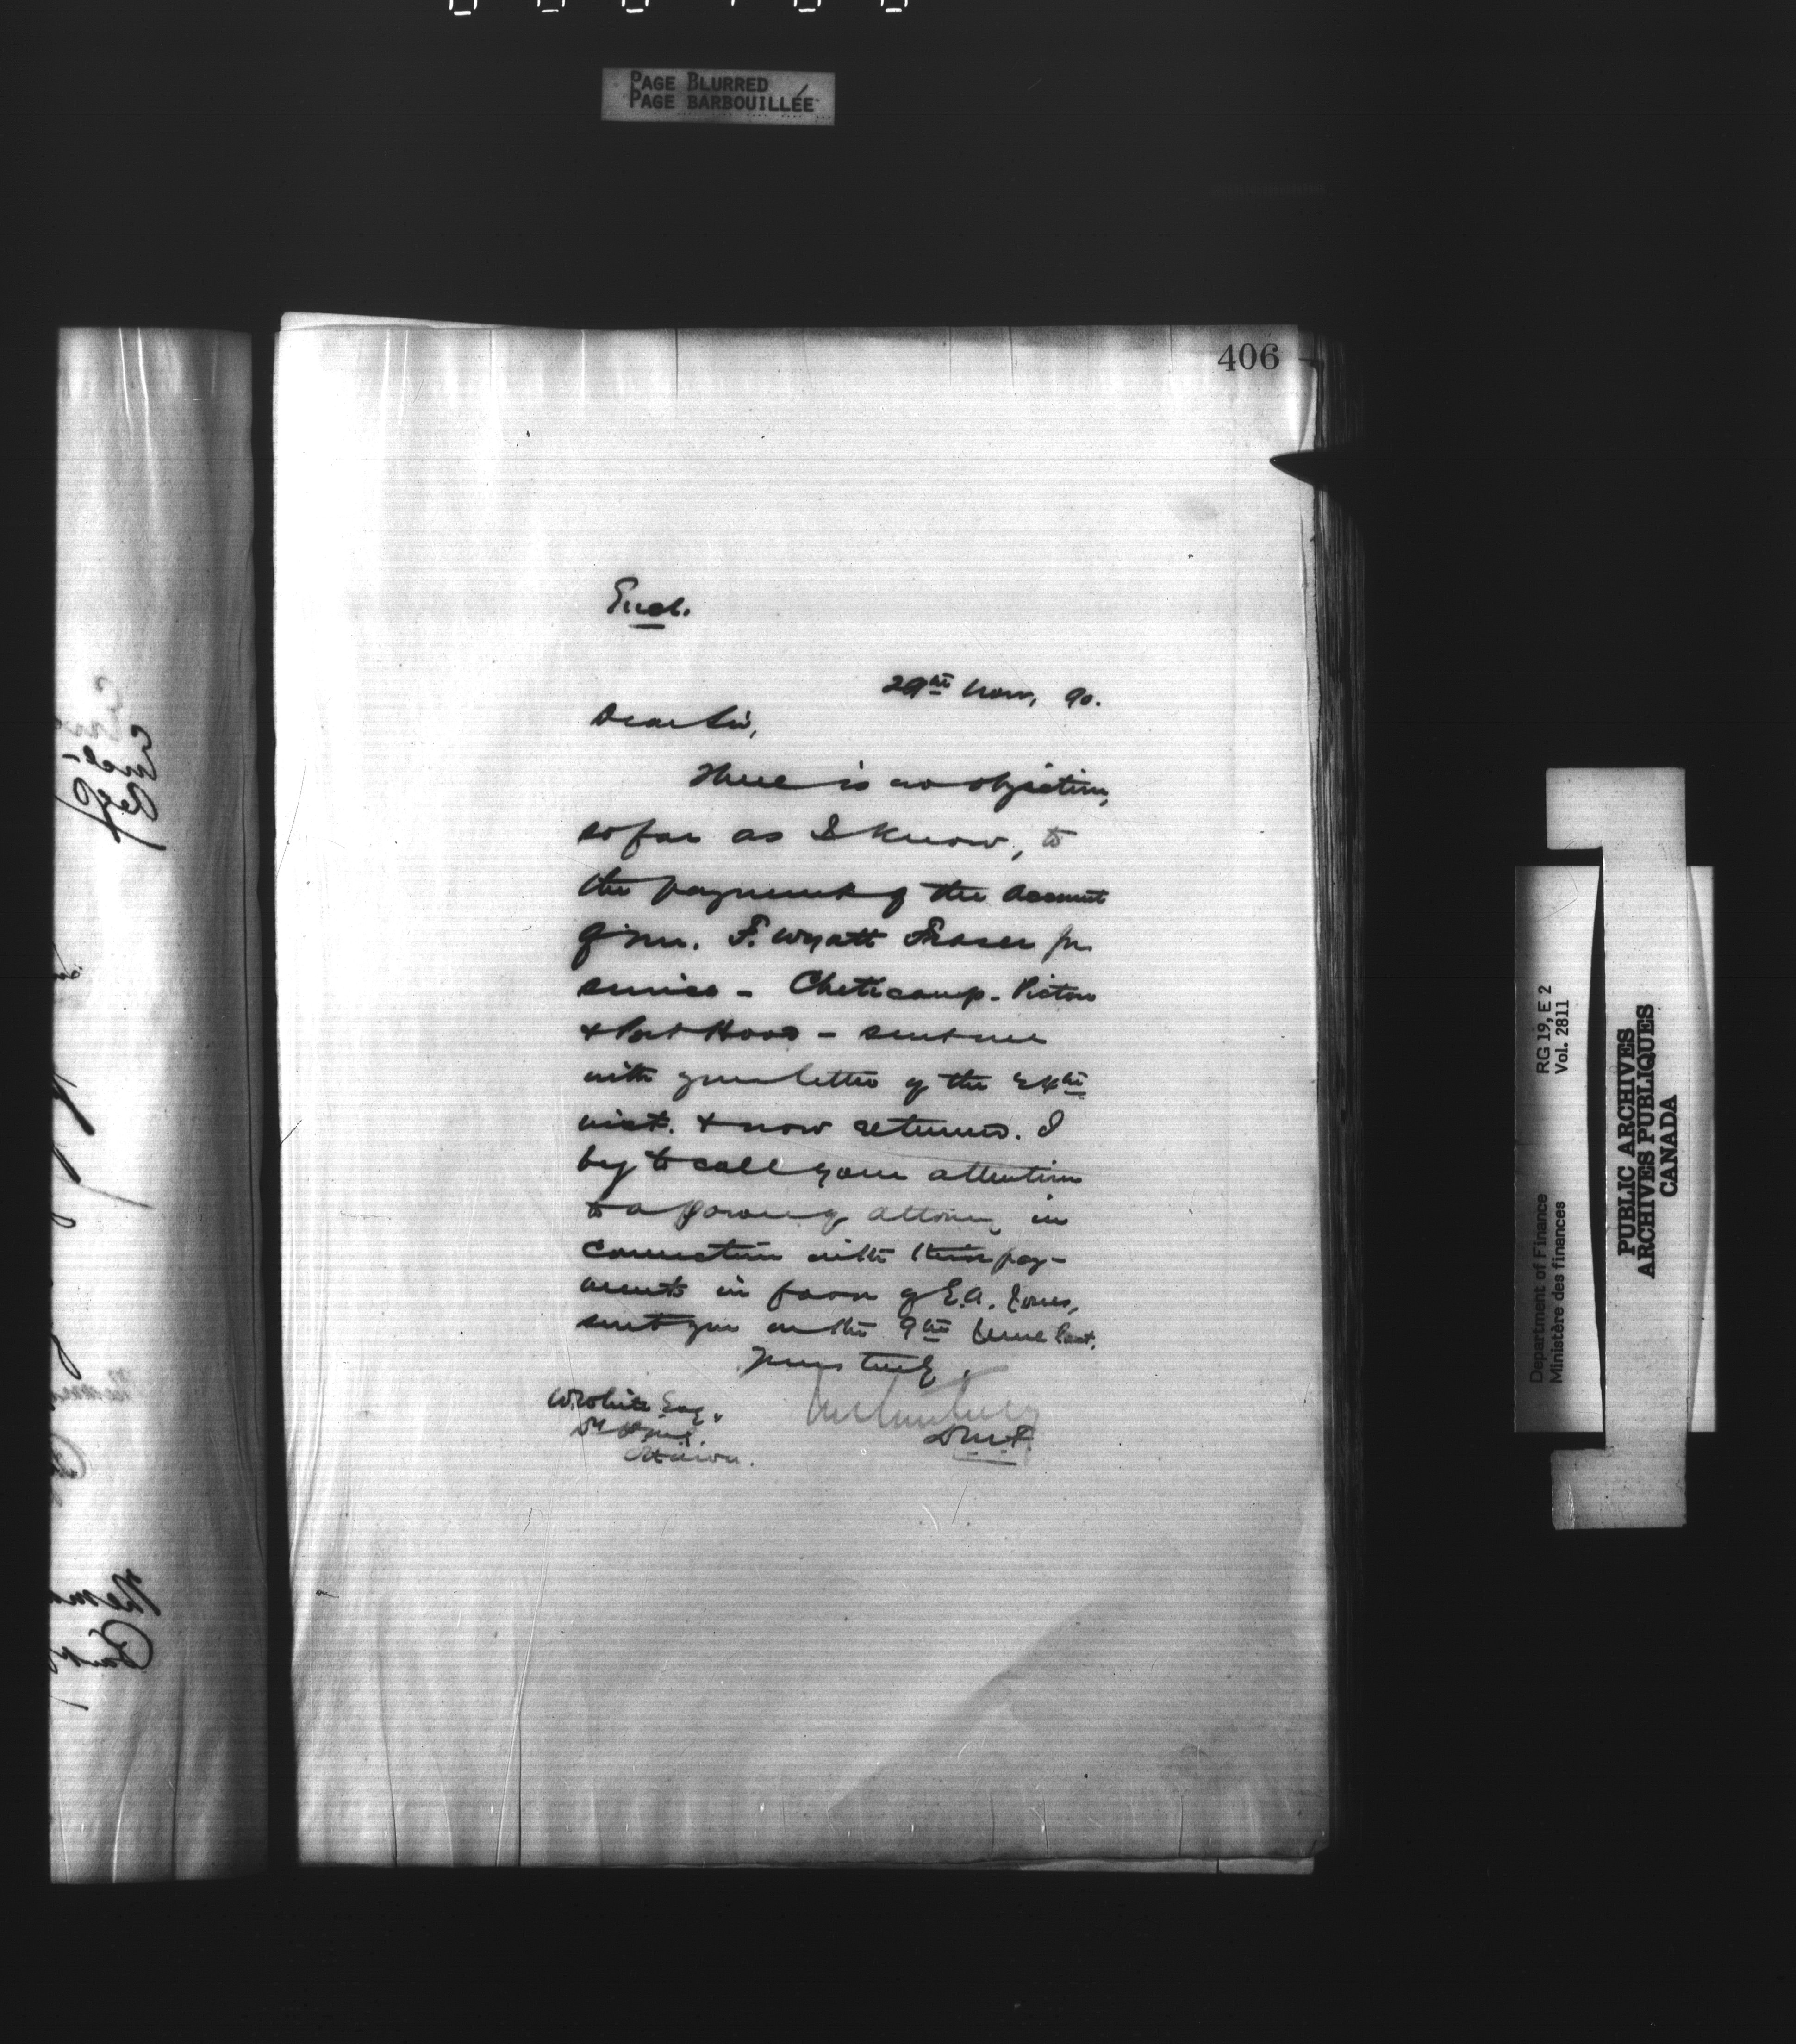 PAGE BLURRED
PAGE BARBOUILLÉE
406
Encl.
29th Nov, 90.
Dear Sir,
There is no objection,
so far as I know, to
the payment of the account
of Mr. F. Wyatt Fraser for
service - Cheticamp - Pictou
& Port Hood - sent me
with your letter of the 24th
inst. & now returned. I
beg to call your attention
to a power of attorney in
connection with these pay-
ments in favor of E.A. Jones,
sent you on the 9th June last.
Yours truly,
W. White Esq.
Ottawa.
DMF.
Department of Finance RG 19, E 2
Ministère des finances Vol. 2811
PUBLIC ARCHIVES
ARCHIVES PUBLIQUES
CANADA